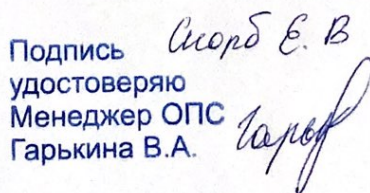 Подпись Скорб Е. В
удостоверяю
Менеджер ОПС
Гарькина В.А.